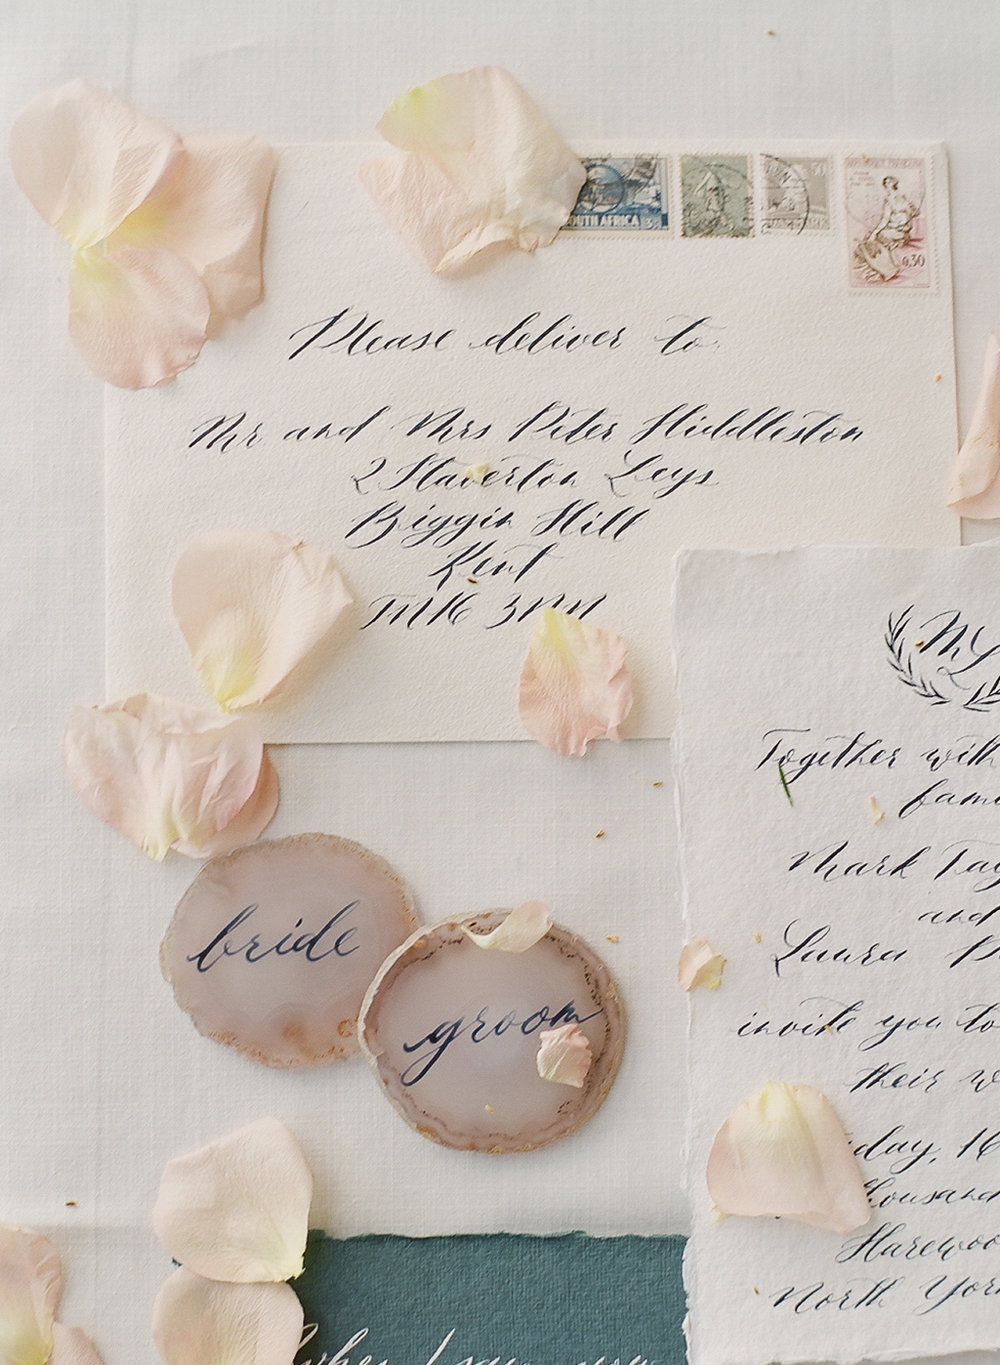 SOUTH AFRICA
0.30
Please deliver to
Mr and Mrs Peter Hiddleston
2 Staverton Leys
Biggin Hill
Kent
ML
Together with
fami
Mark Tay
and
Laura
invite you to
their w
day, 16
thousand
Harewoo
North York
bride
groom
when I saw you